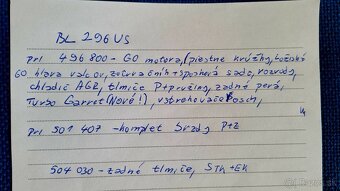 BL 296 US
pri 496 800 - GO motora, (piestne krúžky, ložiská
GO hlava valcov, zotrvačník + spojková sada, rozvody,
chladič AGR, tlmiče P + pružiny, zadné perá,
Turbo Garret (Nové!), vstrekovače Bosch,
pri 501 407 - komplet brzdy P+Z
504 030 - zadné tlmiče, STK + EK